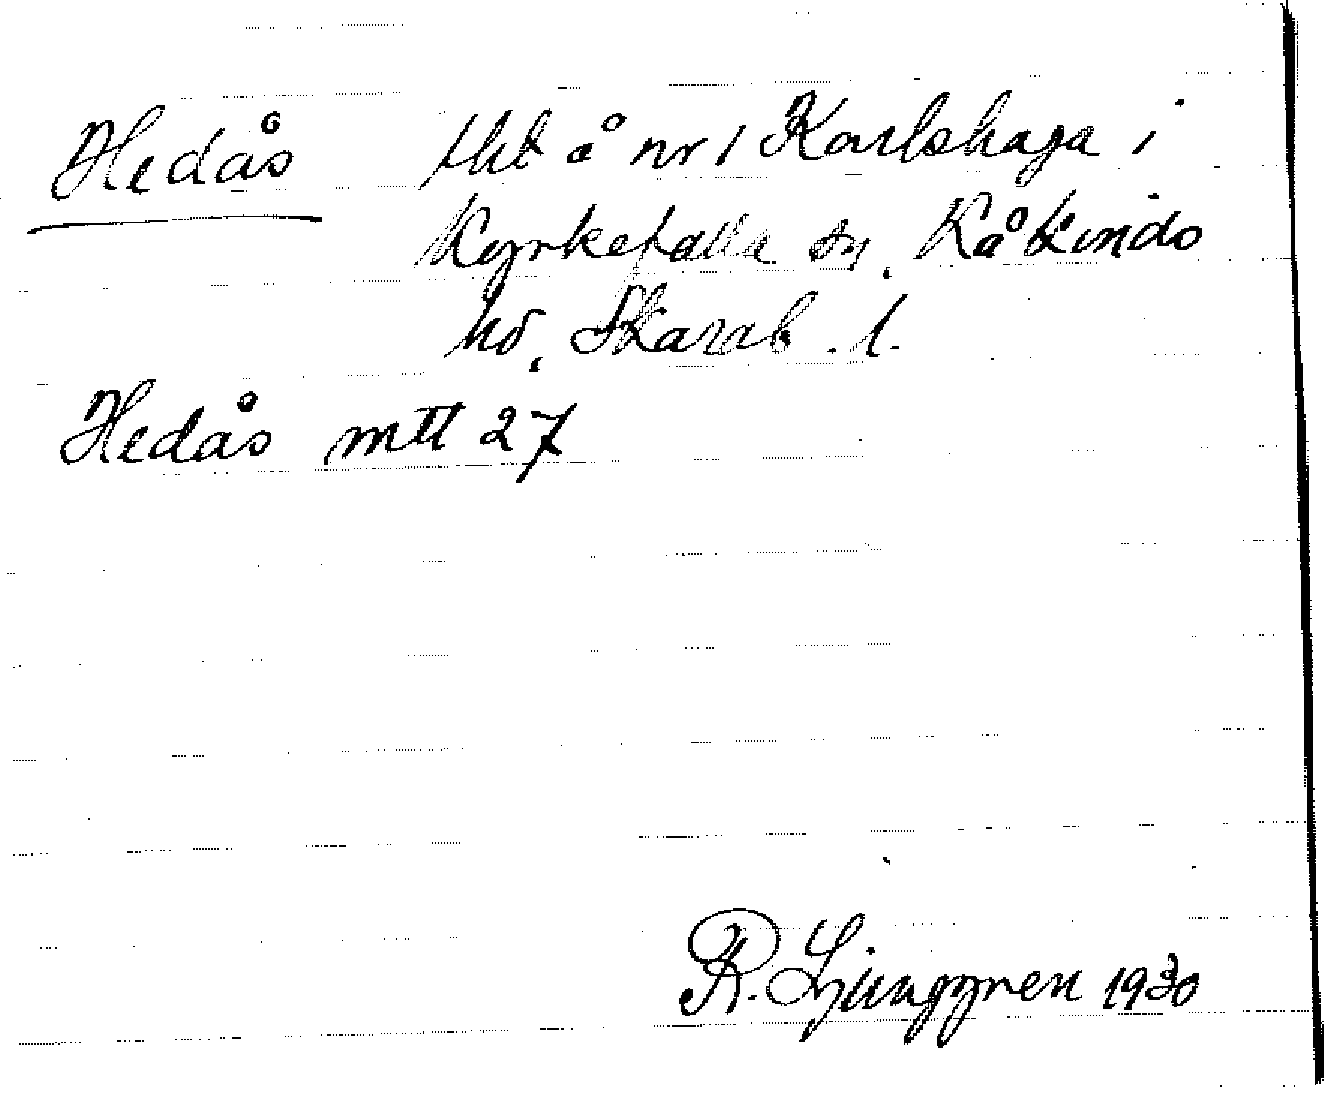 Hedås tht å nr 1 Karlshaga i
Kyrkefalla sn, Kåkinds
hd, Skarab. l.
Hedås mtt 27
R. Ljunggren 1930